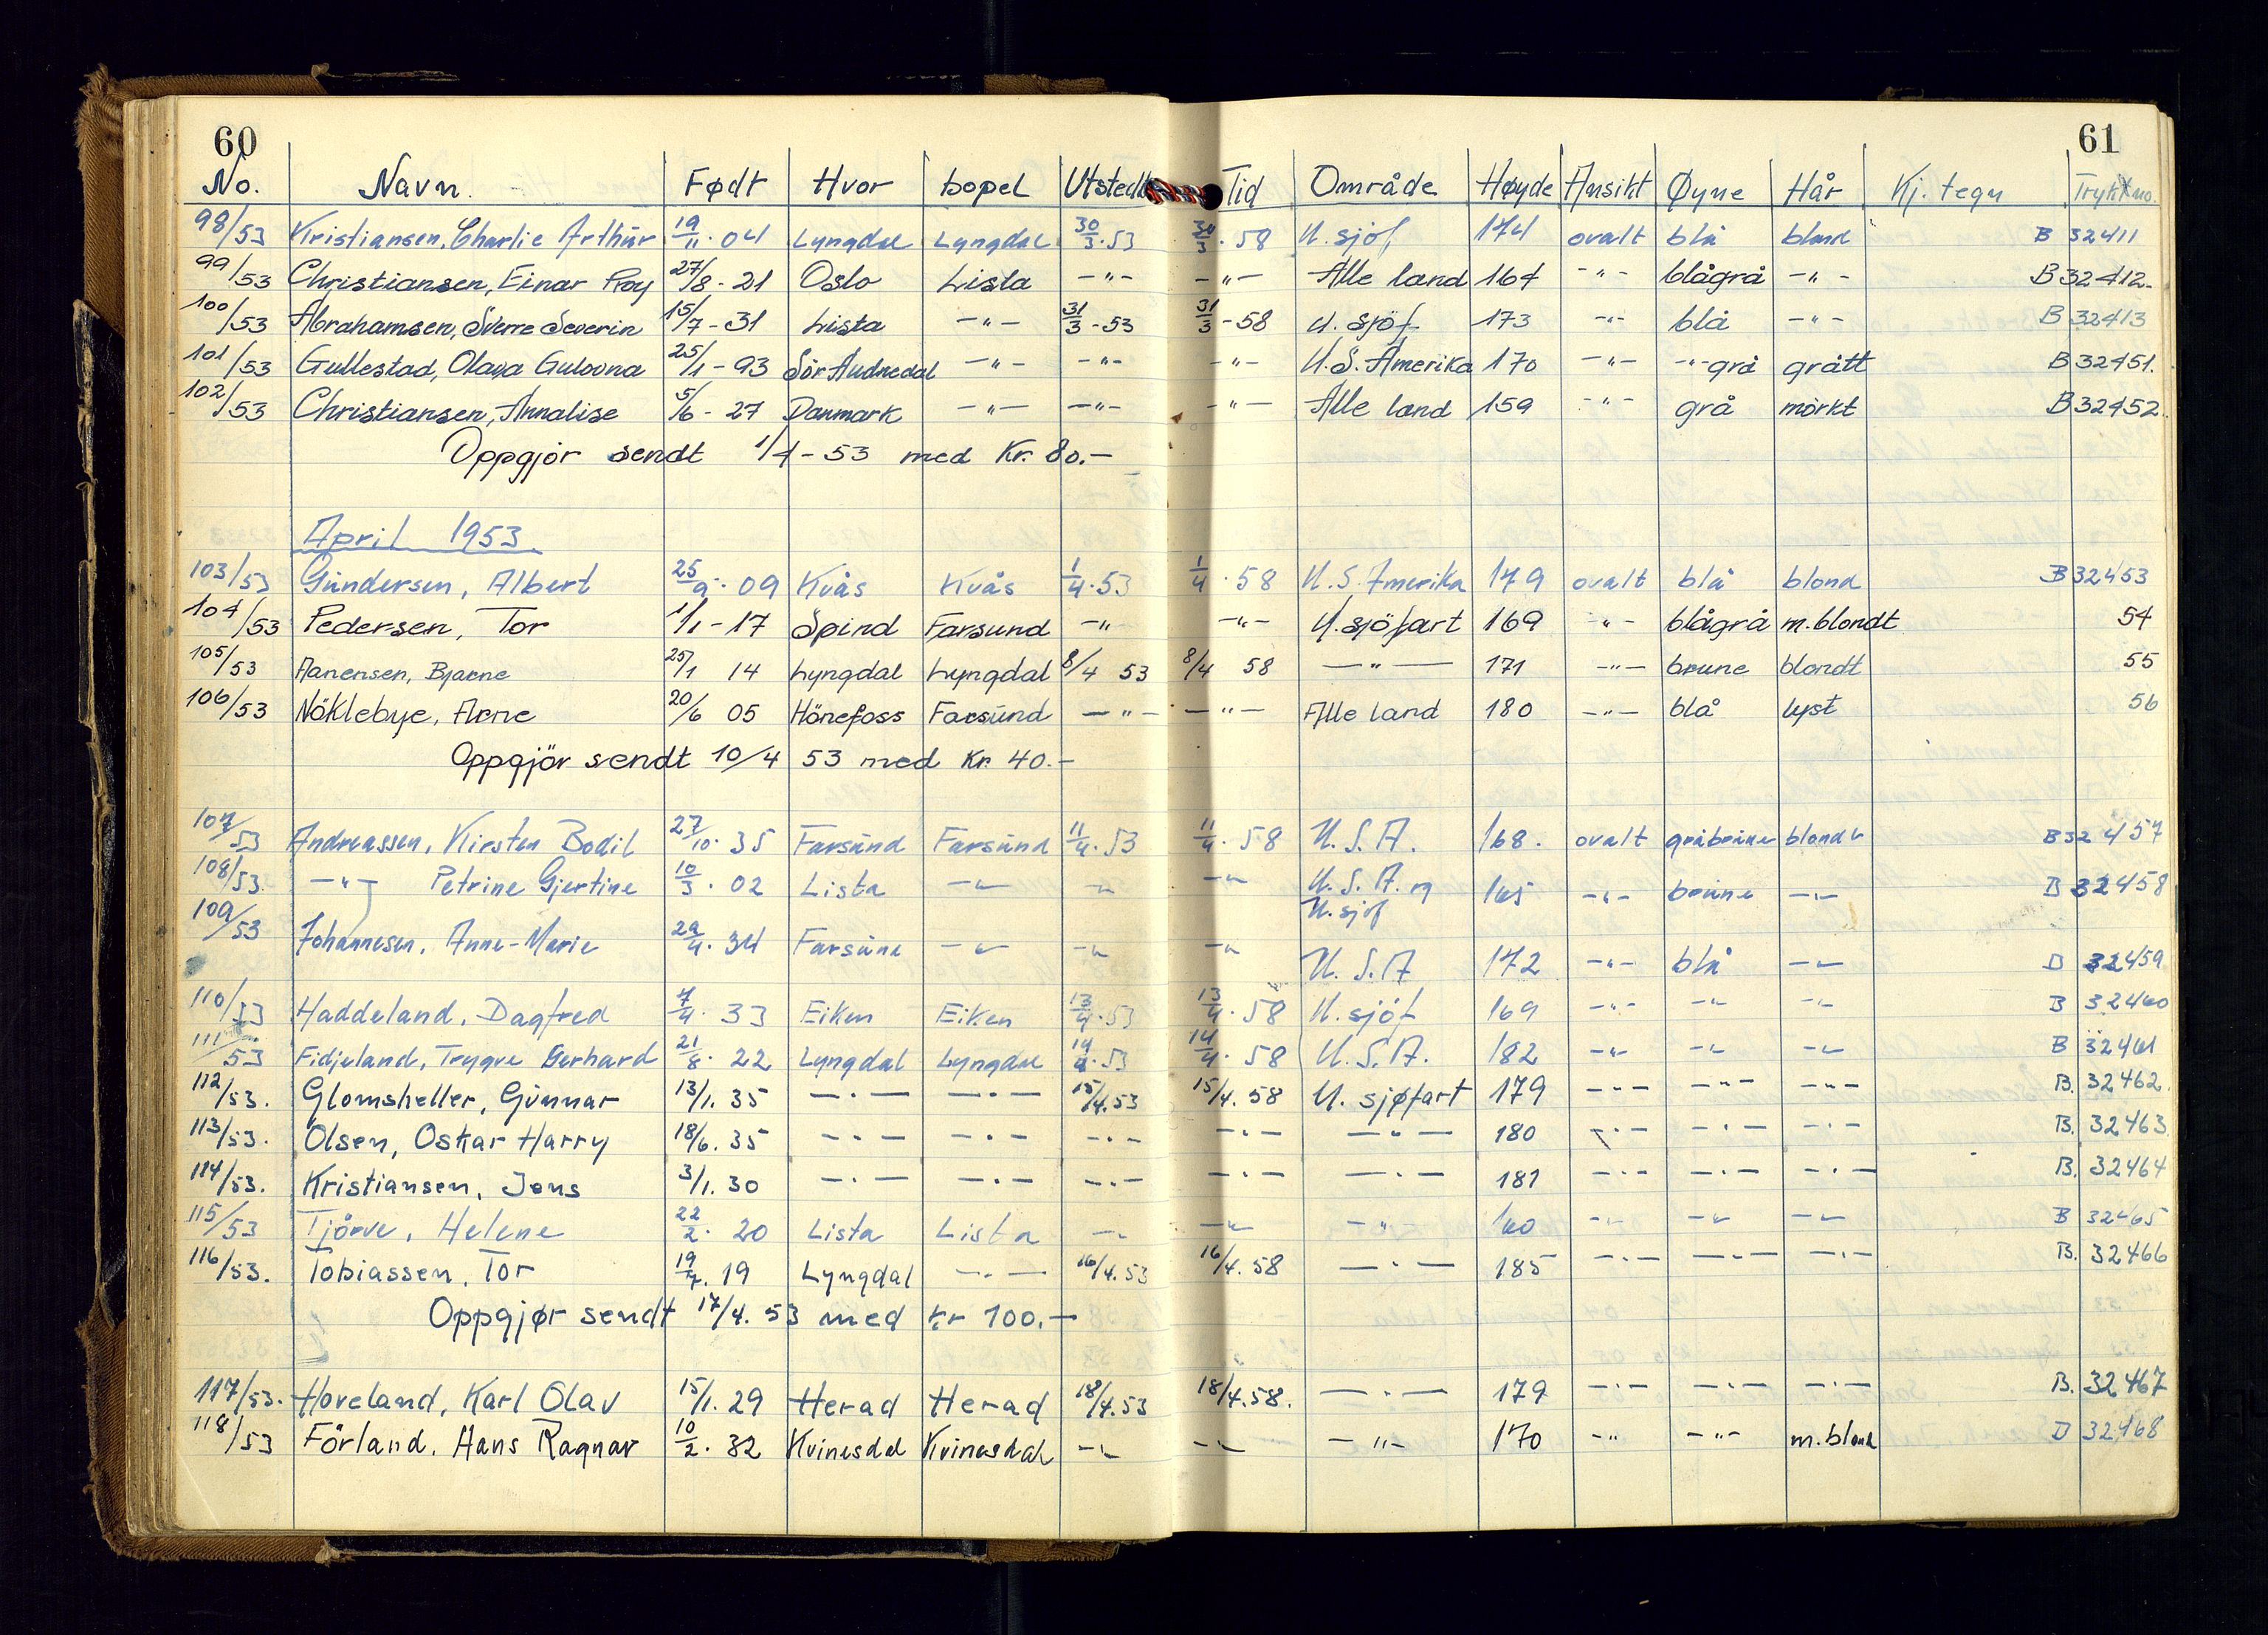 60 61
No. Navn. Født Hvor bopel Utstedt Tid Område Høyde Ansikt Øyne Hår Kj. tegn Trykt no.
98/53 Kristiansen, Charlie Arthur 19/11. 04 Lyngdal Lyngdal 30/3.53 30/3.58 U. sjöf, 174 ovalt blå blond B 32411
99/53 Christiansen, Einar Roy 27/8-21 Oslo Lista -"- -"- Alle land 164 -"- blågrå -"- B 32412.
100/53 Abrahamsen, Sverre Severin 15/7-31 Lista -"- 31/3-53 31/3-58 U. sjöf 173 -"- blå -"- B 32413
101/53 Gullestad, Olava Gulovna 25/1-93 Sör Audnedal -"- -"- -"- U.S. Amerika 170 -"- -"-grå grått B 32451.
102/53 Christiansen, Annalise 5/6-27 Danmark -"- -"- -"- Alle land 159 -"- grå mörkt B 32452.
Oppgjör sendt 1/4-53 med Kr. 80.-
April 1953.
103/53 Gundersen, Albert 25/9. 09 Kvås Kvås 1/4.53 1/4.58 U.S. Amerika 179 ovalt blå blond B 32453
104/53 Pedersen, Tor 1/1-17 Spind Farsund -" -"- U. sjöfart 169 -"- blågrå m.blondt 54
105/53 Aanensen, Bjarne 25/1 14 Lyngdal Lyngdal 8/4 53 8/4 58 -"- 171 -"- brune blondt 55
106/53 Nöklebye, Arne 20/6 05 Hönefoss Farsund -"- -"- Alle land 180 -"- blå lyst 56
Oppgjör sendt 10/4 53 med Kr. 40.-
107/53 Andreassen, Kirsten Bodil 27/10. 35 Farsund Farsund 11/4.53 11/4.58 U.S.A. 168. ovalt gråbrune blondt B 32457
108/53. -"- Petrine Gjertine 10/3. 02 Lista -"- -"- -"- U.S.A. og 165 -"- brune -"- B 32458
U. sjöf
109/53 Johannesen, Anne-Marie 29/4. 34 Farsund -"- -"- -"- U.S.A 172 -"- blå -"- B 32459
110/53 Haddeland, Dagfred 7/4. 33 Eiken Eiken 13/4.53 13/4.58 U. sjöf 169 -"- -"- -"- B 32460
111/53 Fidjeland, Trygve Gerhard 21/8. 22 Lyngdal Lyngdal 14/4.53 14/4.58 U.S.A. 182 -"- -"- -"- B 32461
112/53. Glomsheller, Gunnar 13/1. 35 -"- -"- 15/4.53 15/4.58 U. sjøfart 179 -"- -"- -"- B. 32462.
113/53. Olsen, Oskar Harry 18/6. 35 -"- -"- -"- -"- -"- 180 -"- -"- -"- B. 32463
114/53. Kristiansen, Jens 3/1. 30 -"- -"- -"- -"- -"- 181 -"- -"- -"- B. 32464
115/53 Tjörve, Helene 22/2. 20 Lista Lista -"- -"- -"- 160 -"- -"- -"- B 32465
116/53. Tobiassen, Tor 19/7. 19 Lyngdal -"- 16/4.53 16/4.58 -"- 185 -"- -"- -"- B. 32466
Oppgjør sendt 17/4. 53 med kr 100.-
117/53. Hoveland, Karl Olav 15/1. 29 Herad Herad 18/4.53 18/4.58. -"- 179 -"- -"- -"- B. 32467
118/53 Förland, Hans Ragnar 10/2. 32 Kvinesdal Kvinesdal -"- -"- -"- 170 -"- -"- m.blond B 32468